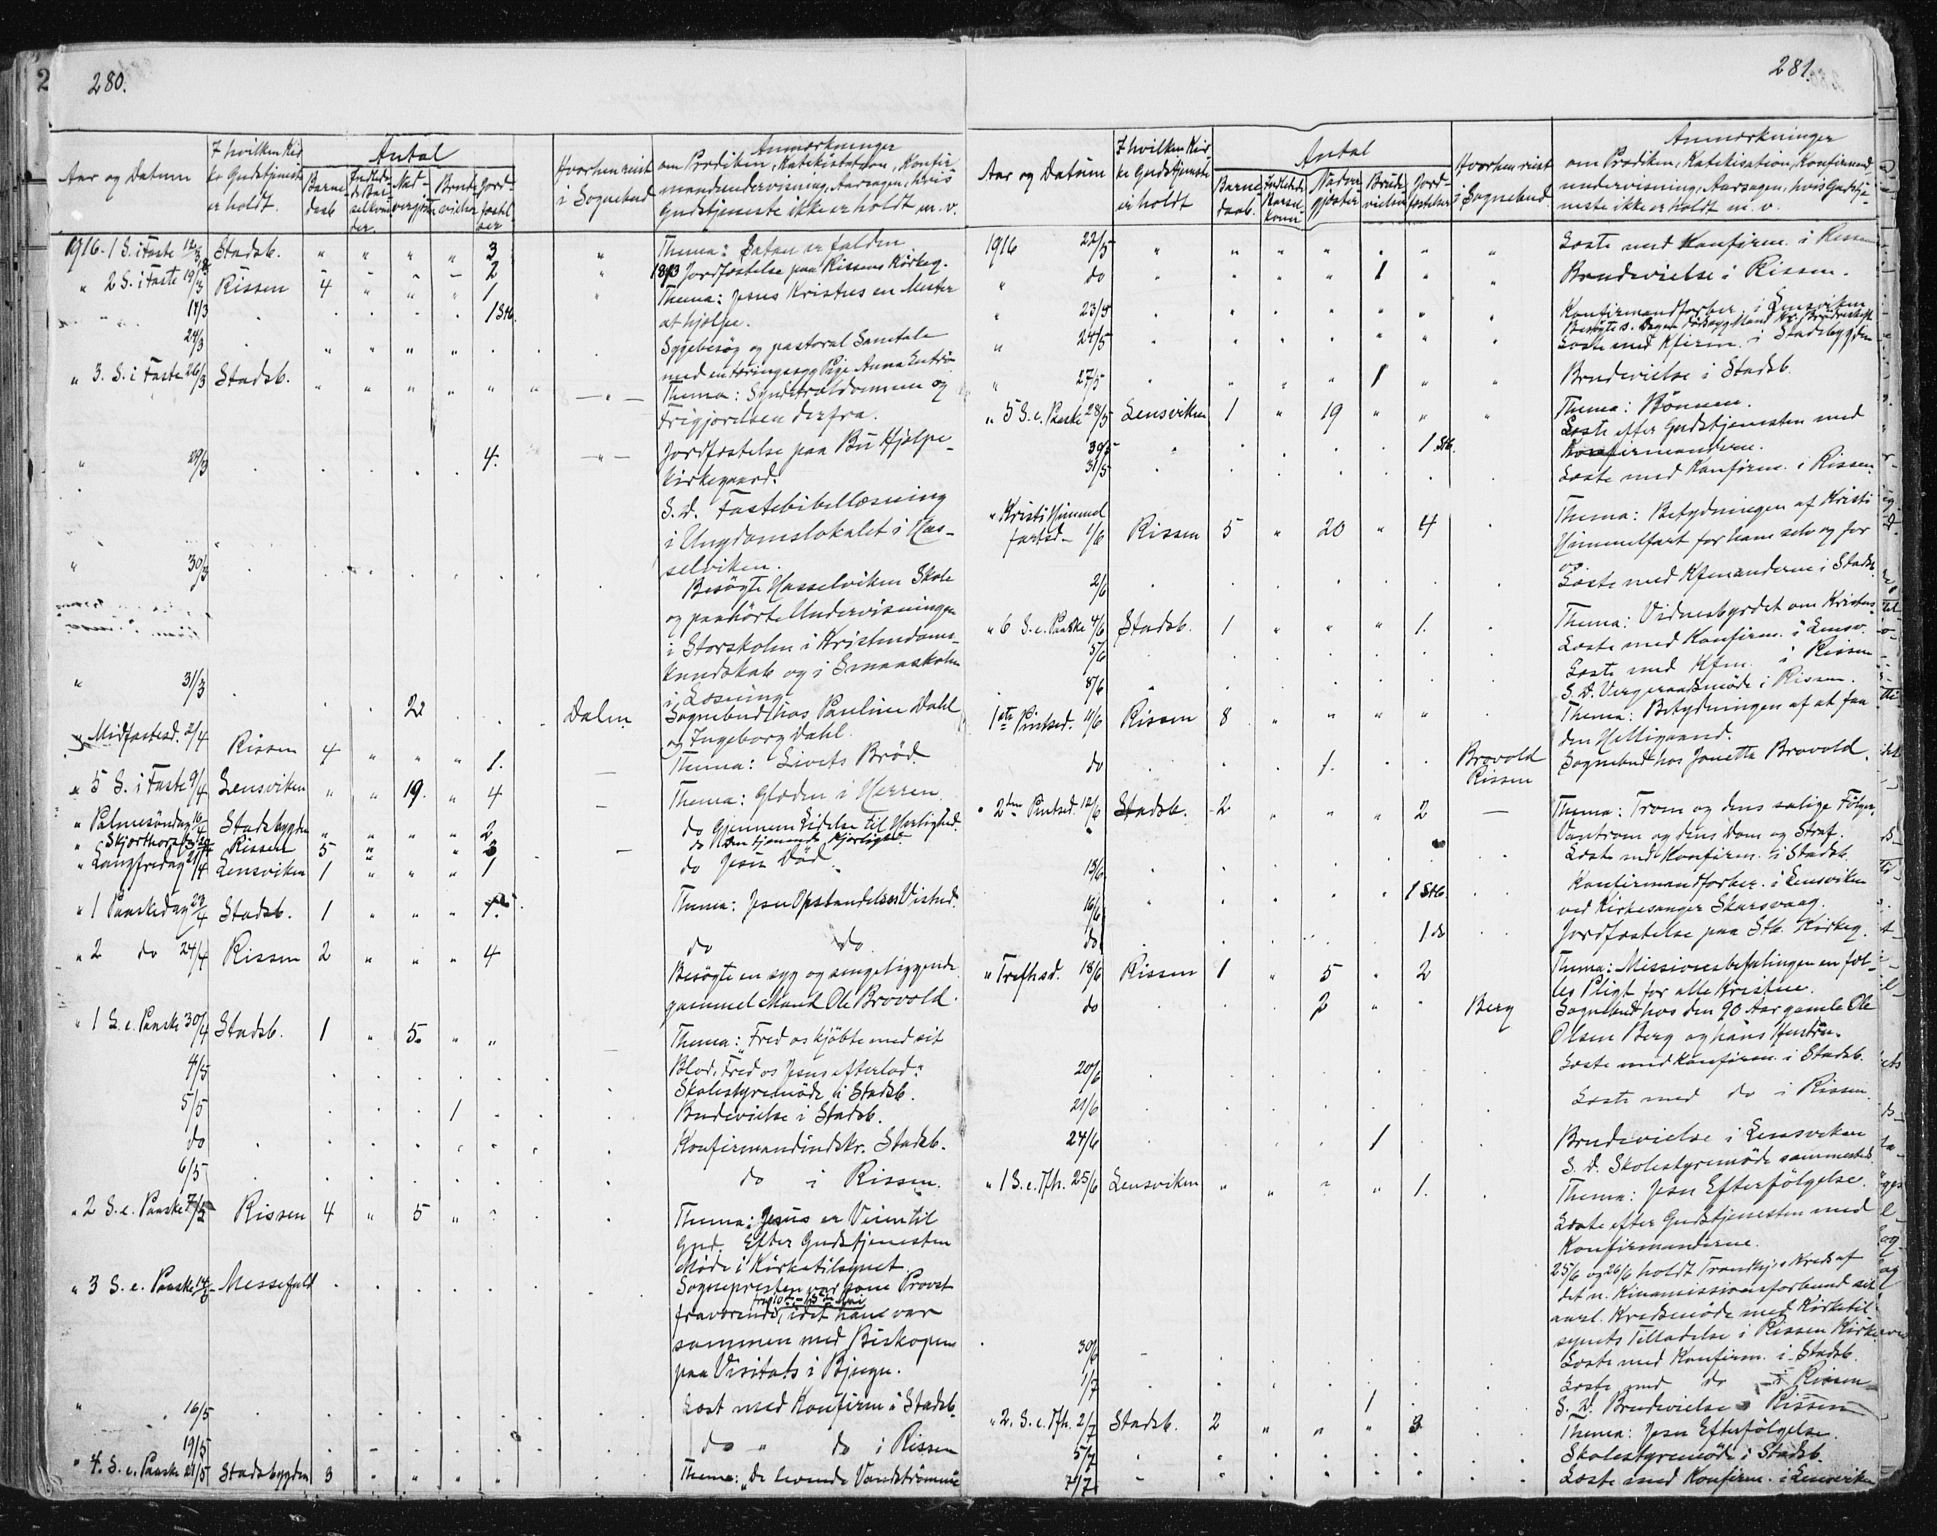 280.
Aar og Datum
I hvilken Kir
ke Gudstjeneste
er holdt.
Antal
Barne
daab
Nad-
vergjæster
Brude
vielser
Jord-
fæstel
ser
Hvorhen reist
i Sognebud
Anmærkninger
om Prædiken, Katekisation, Konfir
mandundervisning, Aarsagen, hvis
Gudstjeneste ikke er holdt m. v.
1916. 1 S. i Faste 12/3 Stadsb. " " " " 3 " Thema: Satan er falden.
2 18/3 Jordfæstelse paa Rissens Kirkeg.
" 2 S. i Faste 19/3 Rissen 4 " " " 1 " Thema: Jesus Kristus en Mester
17/3 1 Stb. at hjælpe.
24/3 Sygebesøg og pastoral Samtale
med en tæringssyg Pige Anna
" 3. S. i Faste 26/3 Stadsb. " " " " " Thema: Syndetrældommen og
Frigjørelsen derfra.
" 29/3 4. Jordfæstelse paa Bu Hjælpe-
kirkegaard.
S. D. Fastebibellæsning
i Ungdomslokalet i Has-
selviken.
" 30/3 Besøgte Hasselviken Skole
og paahørte Undervisningen
i Storskolen i Kristendoms-
kundskab og i Smaaskolen
i Læsning.
" 31/3 2 Dalen Sognebud hos Pauline Dahl
og Ingeborg Dahl.
" Midfastesd. 2/4 Rissen 4 " " " 1. Thema: Livets Brød.
" 5 S. i Faste 9/4 Lensviken " " 19. " 4 Thema: Glæden i Herren
" Palmesøndag 16/4 Stadsbygden " " " " 2 do Gjennem Lidelse til Herlighed.
" Skjærthorsd. 20/4 Rissen 5 " " 3 do Den tjenende Kjærlighed.
" Langfredag 21/4 Lensviken 1 " " " 1 do Jesu Død.
" 1 Paaskedag 23/4 Stadsb. 1 " " " 1. Thema: Jesu Opstandelses Vished.
" 2 do 24/4 Rissen 2 " " " 4 do do
Besøgte en syg og sengeliggende
gammel Mand Ole Brovold.
" 1 S. e. Paaske 30/4 Stadsb. 1 " 5. " " Thema: "Fred os kjøbte med sit
Blod. Fred os Jesus efterlod."
4/5 Skolestyremøde i Stadsb.
5/5 1 Brudevielse i Stadsb.
do Konfirmandindskr. Stadsb.
6/5 do i Rissen.
" 2 S. e. Paaske 7/5 Rissen 4 " 5 " " Thema: Jesus er Veien til
Gud. Efter Gudstjenesten
Møde i Kirketilsynet.
" 3 S. e. Paaske 14/5 Messefald Sognepresten var som Provst
fraværende fra 10de - 15de Mai, idet han var
sammen med Biskopen
paa Visitats i Bjugn.
" 16/5 Læst med Konfirm i Stadsb.
19/5 do " do i Rissen
" 4. S. e. Paaske 21/5 Stadsbygden 3 " " " " Thema: "De levende Vandstrømme
281.
Aar og Datum
I hvilken Kir
ke Gudstjeneste
er holdt
Antal
Barne
daab.
Indledede
Barsel
koner
Nadver
gjæster
Brude
vielser
Jord-
fæstelser
Hvorhen reist
i Sognebud
Anmærkninger
om Prædiken, Katekisation, Konfirmand
undervisning, Aarsagen, hvis Gudstje-
neste ikke er holdt m. v.
1916 22/5 " " " " " " " Læste med Konfirm. i Rissen
" do " " " 1 " " Brudevielse i Rissen.
" 23/5 Konfirmandforber. i Lensviken
" 24/5 Læste med Kfirm. i Stadsbygden
" 27/5 1 " " Brudevielse i Stadsb.
" 5 S. e. Paaske 28/5 Lensviken 1 " 19 " " " Thema: Bønnen.
Læste efter Gudstjenesten med
30/5 1 Stb. Konfirmanderne.
31/5 Læste med Konfirm. i Rissen
" Kristi Himmel
fartsd. 1/6 Rissen 5 " 20 " 4 Thema: Betydningen af Kristi
Himmelfart for ham selv og for
os.
2/6 Læste med Kfmanderne i Stadsb.
" 6 S. e. Paaske 4/6 Stadsb. 1 " " " 1. Thema: Vidnesbyrdet om Kristus.
5/6 Læste med Konfirm. i Lensv.
Læste med Kfm. i Rissen
8/6 S. D. Vergeraadsmøde i Rissen.
1ste Pintsed. 11/6 Rissen 8 " " " " Thema: Betydningen af at faa
den Helligaand.
do 1. Brovold
Rissen Sognebud hos Jonetta Brovold.
" 2den Pintsed. 12/6 Stadsb. 2 " " " 2 — Thema: Troen og dens salige Følger
Vantroen og dens Dom og Straf.
13/6 Læste med Konfirm. i Stadsb.
16/6 1 Stb. Konfirmandforber. i Lensviken
ved Kirkesanger Skarsvaag.
do 1 do Jordfæstelse paa Stb. Kirkeg.
" Trefhsd. 18/6 Rissen 1 " 5 " 2 Thema: Missionsbefalingen en fæl-
les Pligt for alle Kristne.
do 2 " " Berg Sognebud hos den 90 Aar gamle Ole
Olsen Berg og hans Hustru.
20/6 Læste med Konfirm. i Stadsb.
21/6 Læste med do i Rissen.
24/6 1 Brudevielse i Lensviken
S. D. Skolestyremøde sammesteds.
" 1 S. e. Tfh. 25/6 Lensviken " " " " 1. Thema: Jesu Efterfølgelse.
Læste efter Gudstjenesten med
Konfirmanderne.
25/6 og 26/6 holdt Trondhj.s Kreds af
det n. Kinamissionsforbund sit
aarl. Kredsmøde med Kirketil-
synets Tilladelse i Rissen Kirke
30/6 Læste med Konfirm. i Stadsb.
1/7 Læste med do i Rissen
1 S. D. Brudevielse i Rissen
" 2. S. e. Tfh. 2/7 Stadsb. 2 " " " 3 Thema: Jesu Efterfølgelse.
5/7 Skolestyremøde i Stadsb.
7/7 Læste med Konfirm. i Lensviken